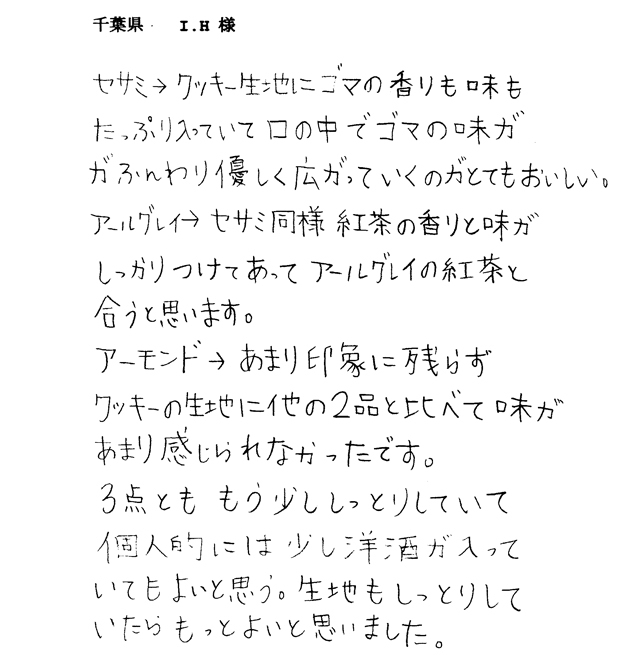 千葉県 I.H 様
セサミ→クッキー生地にゴマの香りも味も
たっぷり入っていて口の中でゴマの味が
がふんわり優しく広がっていくのがとてもおいしい。
アールグレイ→セサミ同様 紅茶の香りと味が
しっかりつけてあって アールグレイの紅茶と
合うと思います。
アーモンド→あまり印象に残らず
クッキーの生地に他の2品と比べて味が
あまり感じられなかったです。
3点とも もう少ししっとりしていて
個人的には少し洋酒が入って
いてもよいと思う。生地もしっとりして
いたらもっとよいと思いました。